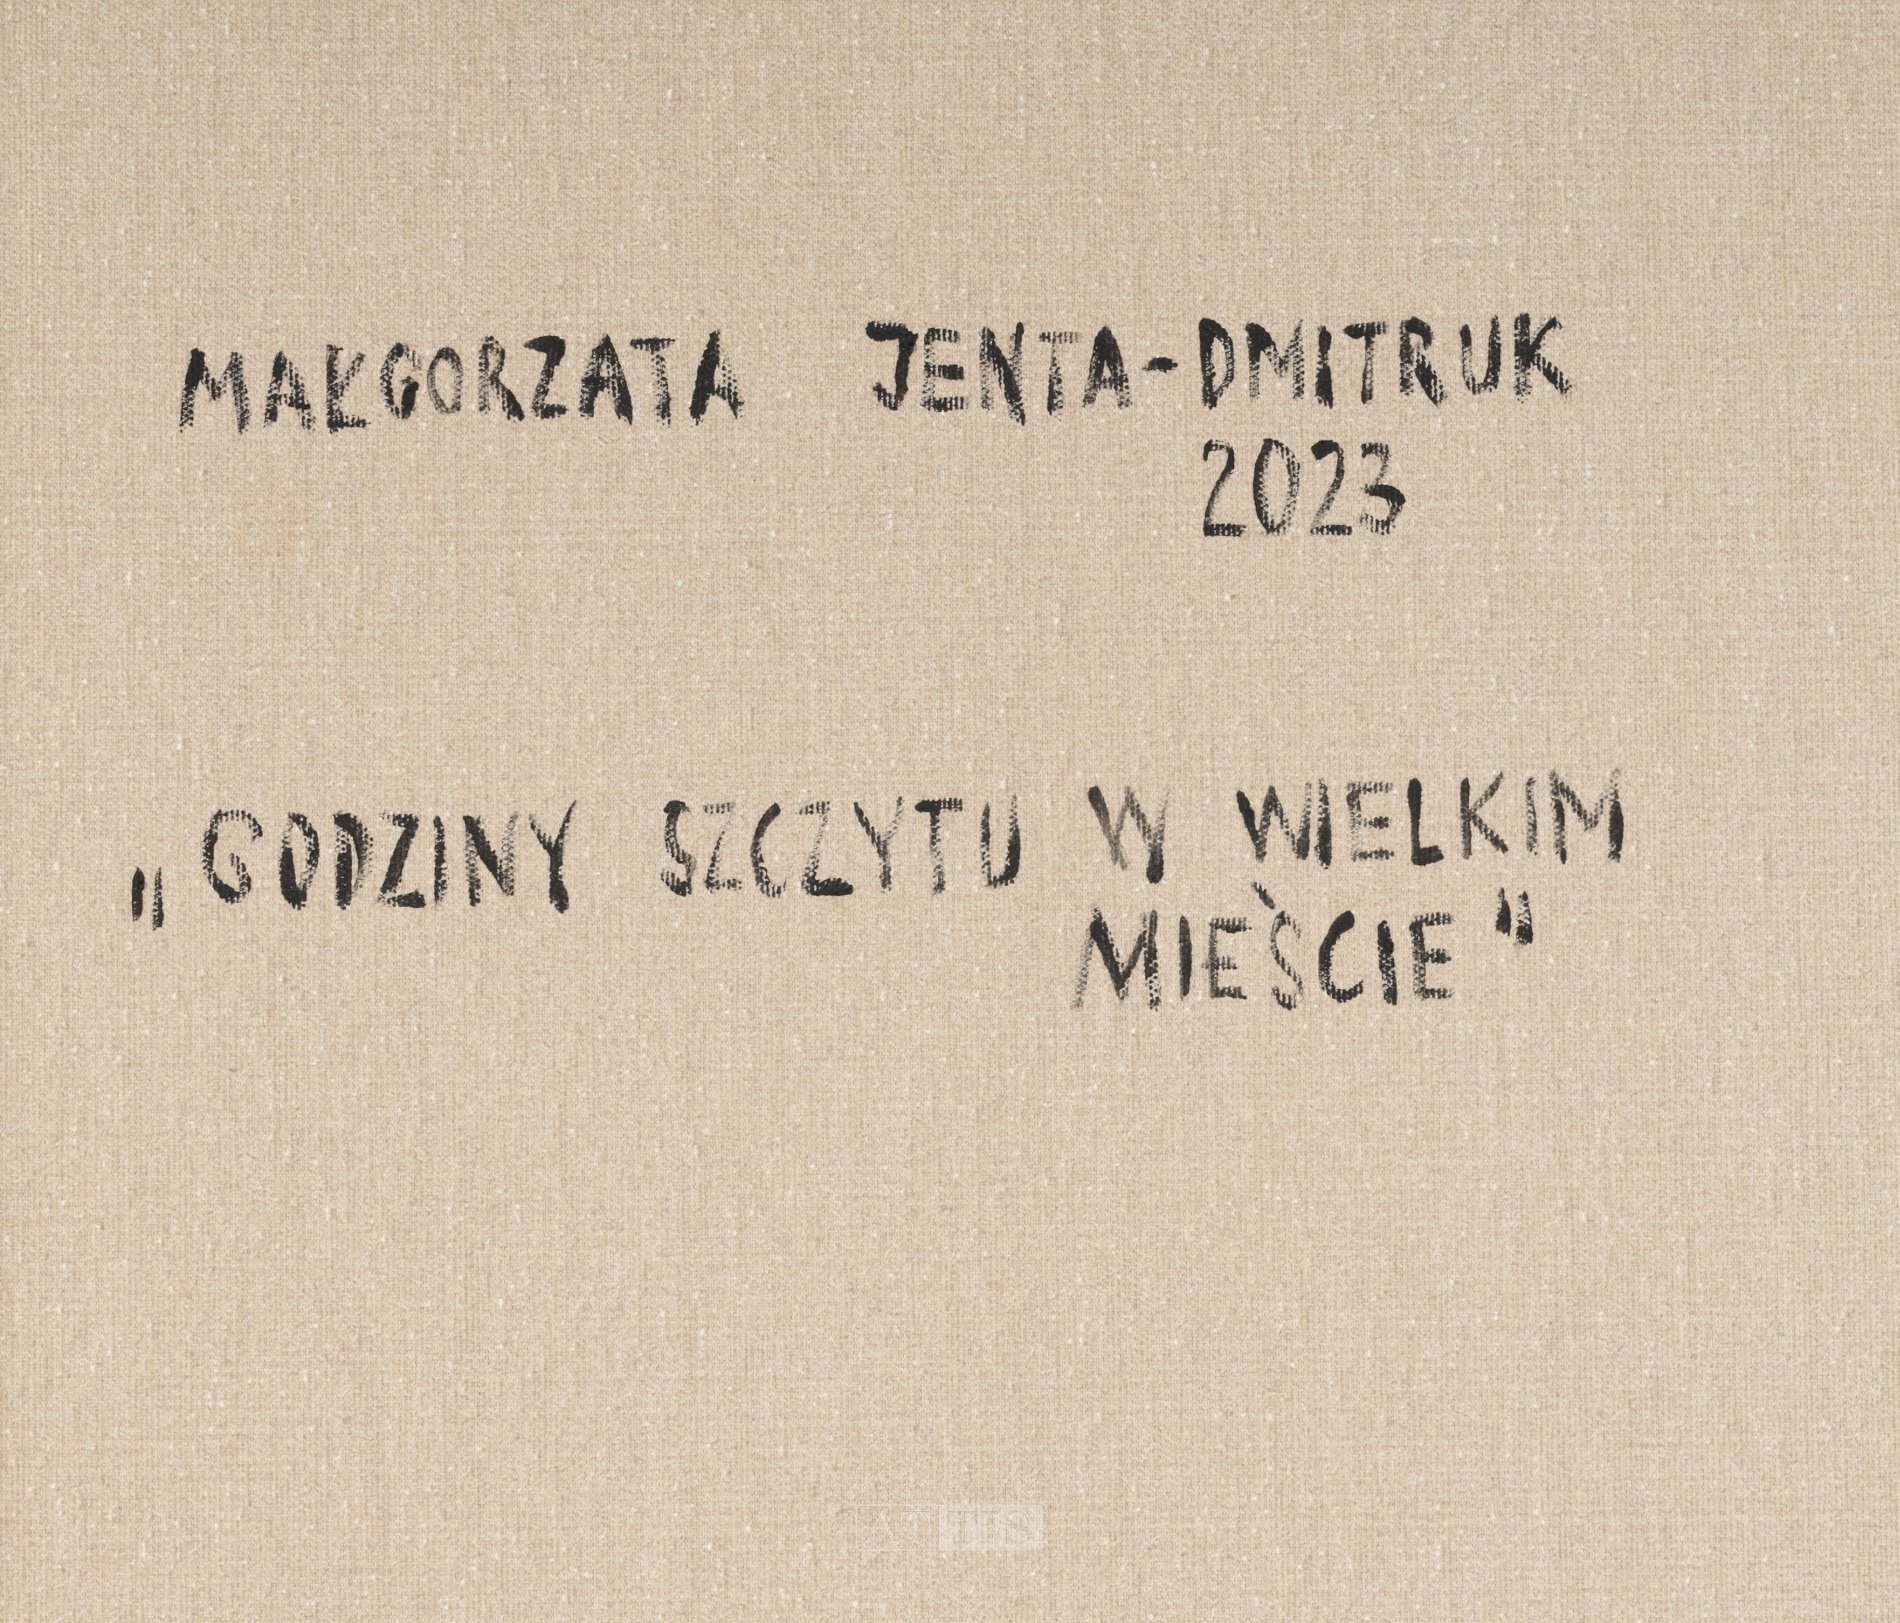 MAŁGORZATA JENTA-DMITRUK
2023
„GODZINY SZCZYTU W WIELKIM
MIEŚCIE"